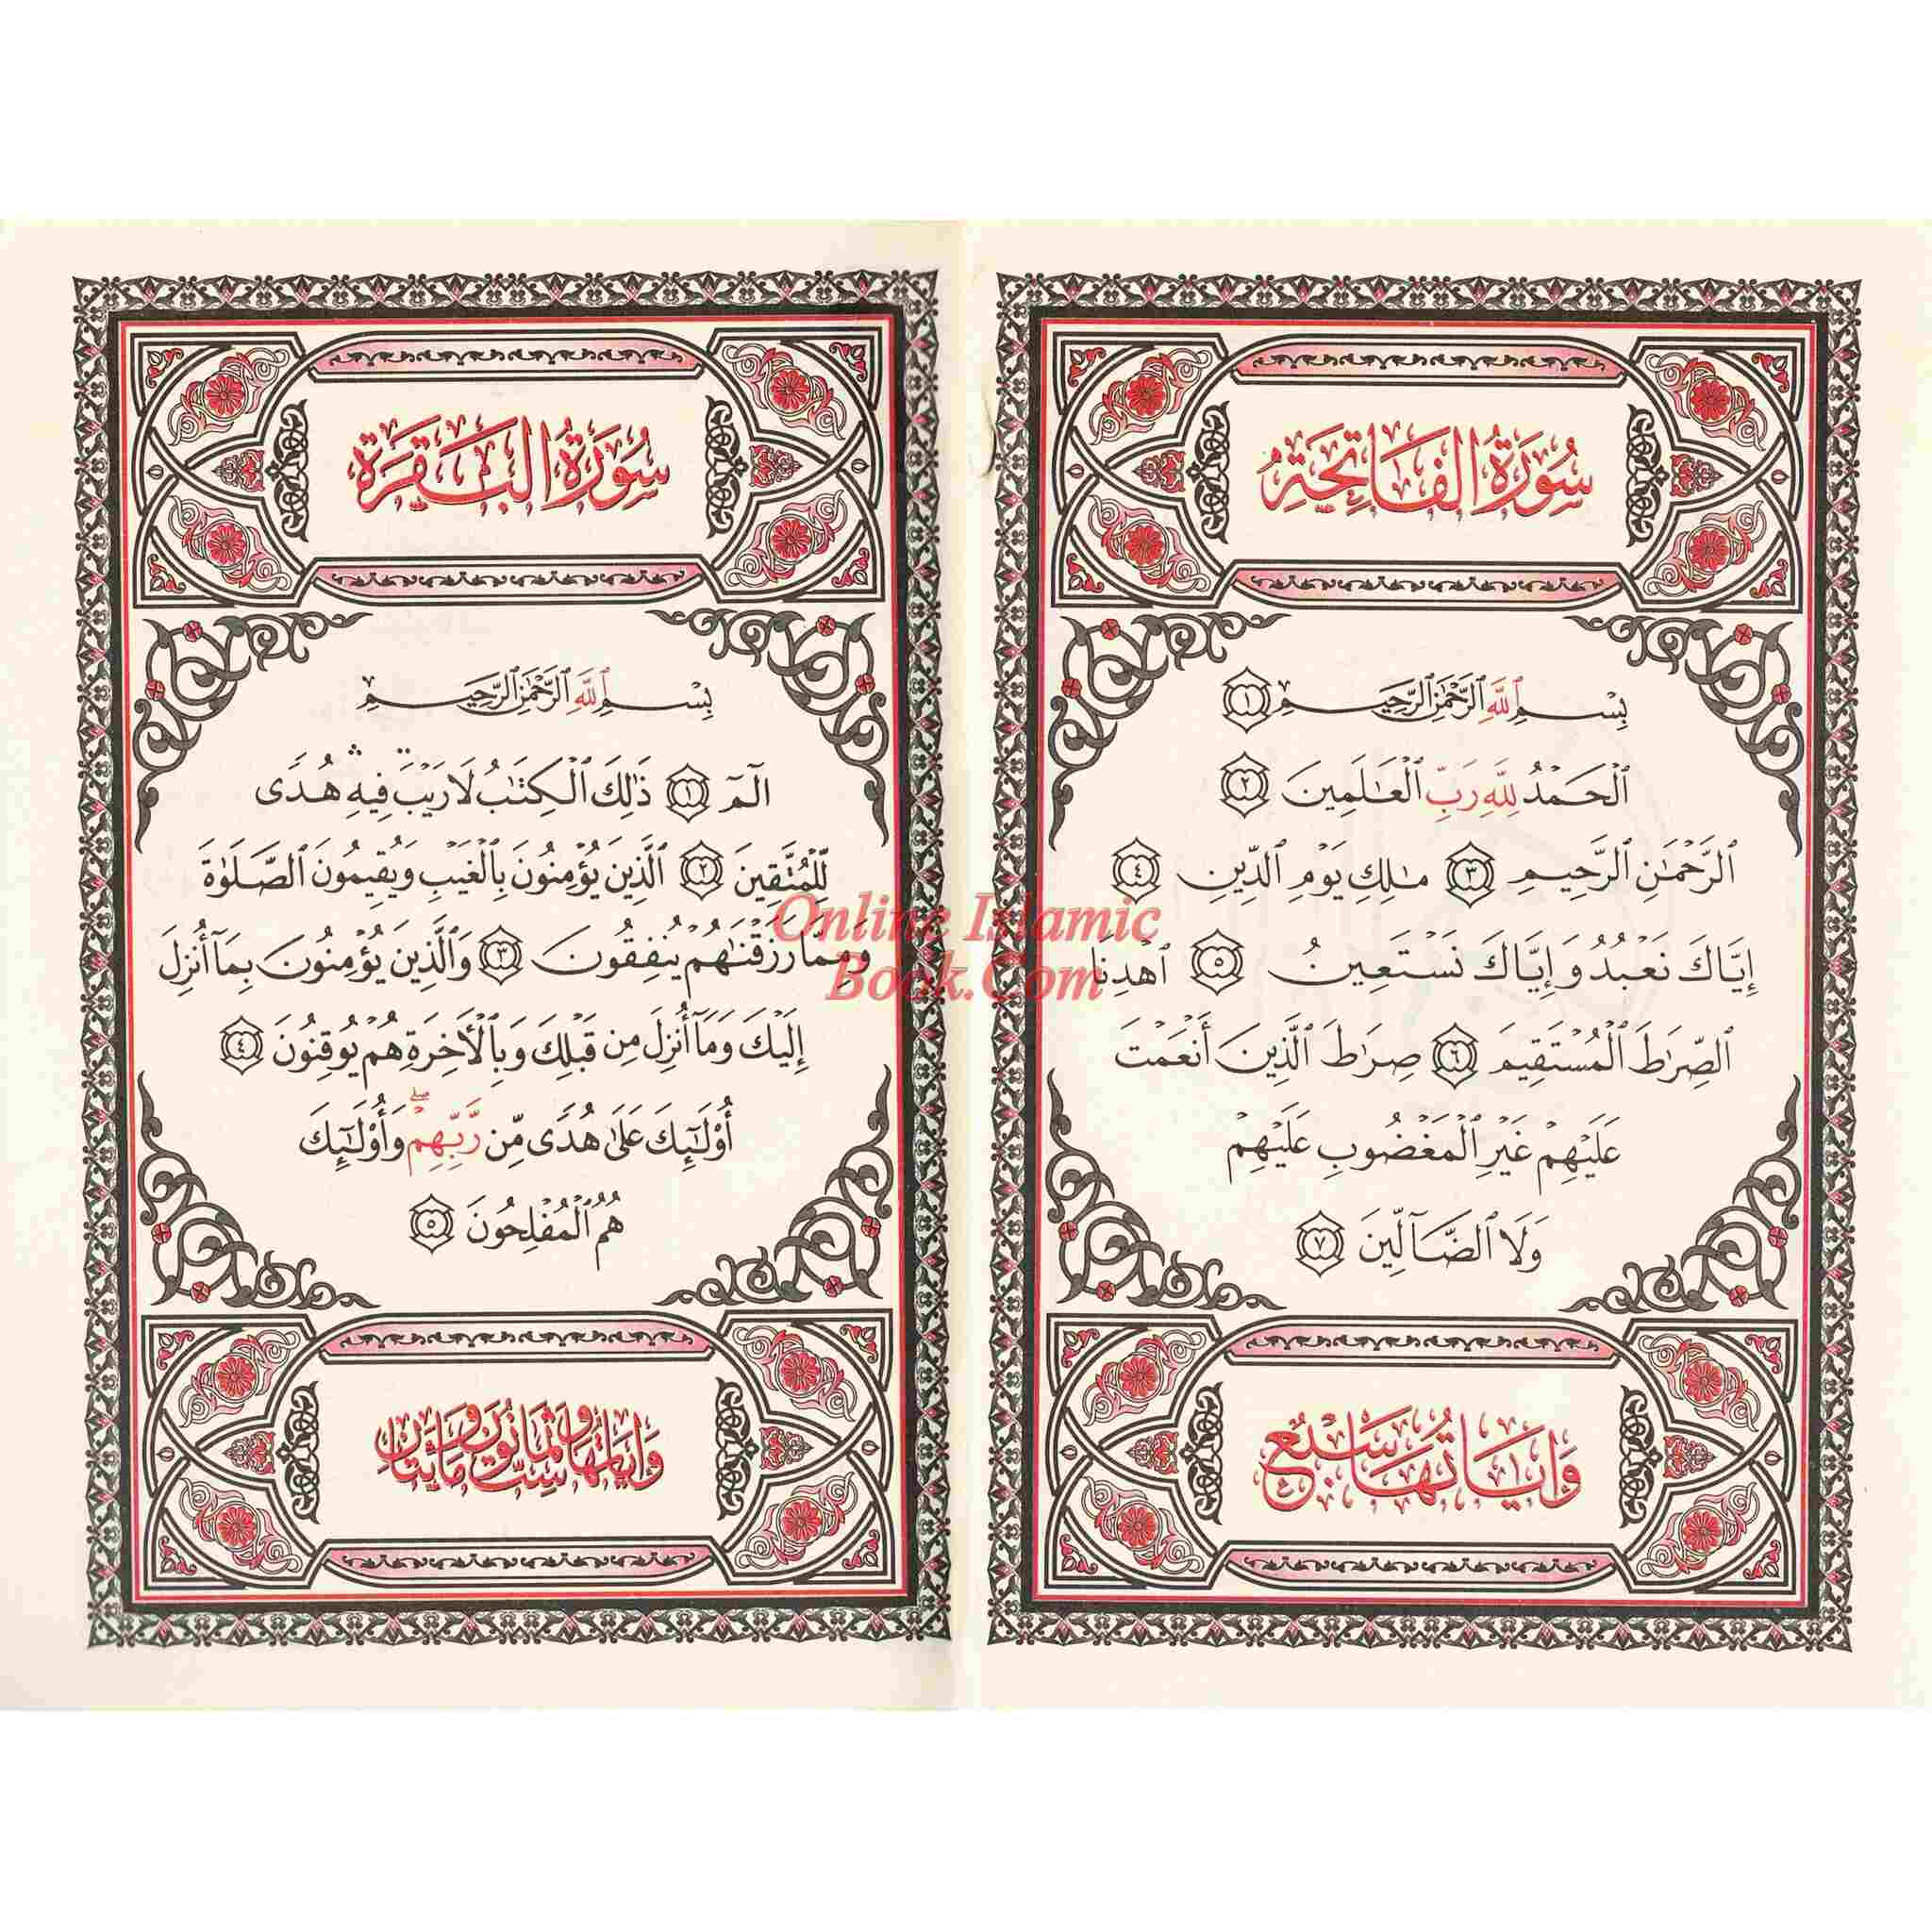 سُورَةُ الفَاتِحَةِ
بِسْمِ ٱللَّهِ ٱلرَّحْمَٰنِ ٱلرَّحِيمِ ١
ٱلْحَمْدُ لِلَّهِ رَبِّ ٱلْعَٰلَمِينَ ٢
ٱلرَّحْمَٰنِ ٱلرَّحِيمِ ٣ مَٰلِكِ يَوْمِ ٱلدِّينِ ٤
إِيَّاكَ نَعْبُدُ وَإِيَّاكَ نَسْتَعِينُ ٥ ٱهْدِنَا
ٱلصِّرَٰطَ ٱلْمُسْتَقِيمَ ٦ صِرَٰطَ ٱلَّذِينَ أَنْعَمْتَ
عَلَيْهِمْ غَيْرِ ٱلْمَغْضُوبِ عَلَيْهِمْ
وَلَا ٱلضَّآلِّينَ ٧
وَآيَاتُهَا سَبْعٌ
سُورَةُ البَقَرَةِ
بِسْمِ ٱللَّهِ ٱلرَّحْمَٰنِ ٱلرَّحِيمِ
الٓمٓ ١ ذَٰلِكَ ٱلْكِتَٰبُ لَا رَيْبَۛ فِيهِۛ هُدًى
لِّلْمُتَّقِينَ ٢ ٱلَّذِينَ يُؤْمِنُونَ بِٱلْغَيْبِ وَيُقِيمُونَ ٱلصَّلَوٰةَ
وَمِمَّا رَزَقْنَٰهُمْ يُنفِقُونَ ٣ وَٱلَّذِينَ يُؤْمِنُونَ بِمَآ أُنزِلَ
إِلَيْكَ وَمَآ أُنزِلَ مِن قَبْلِكَ وَبِٱلْأَخِرَةِ هُمْ يُوقِنُونَ ٤
أُو۟لَٰٓئِكَ عَلَىٰ هُدًى مِّن رَّبِّهِمْۖ وَأُو۟لَٰٓئِكَ
هُمُ ٱلْمُفْلِحُونَ ٥
وَآيَاتُهَا سِتٌّ وَثَمَانُونَ وَمَائَتَانِ
Online Islamic
Book.Com